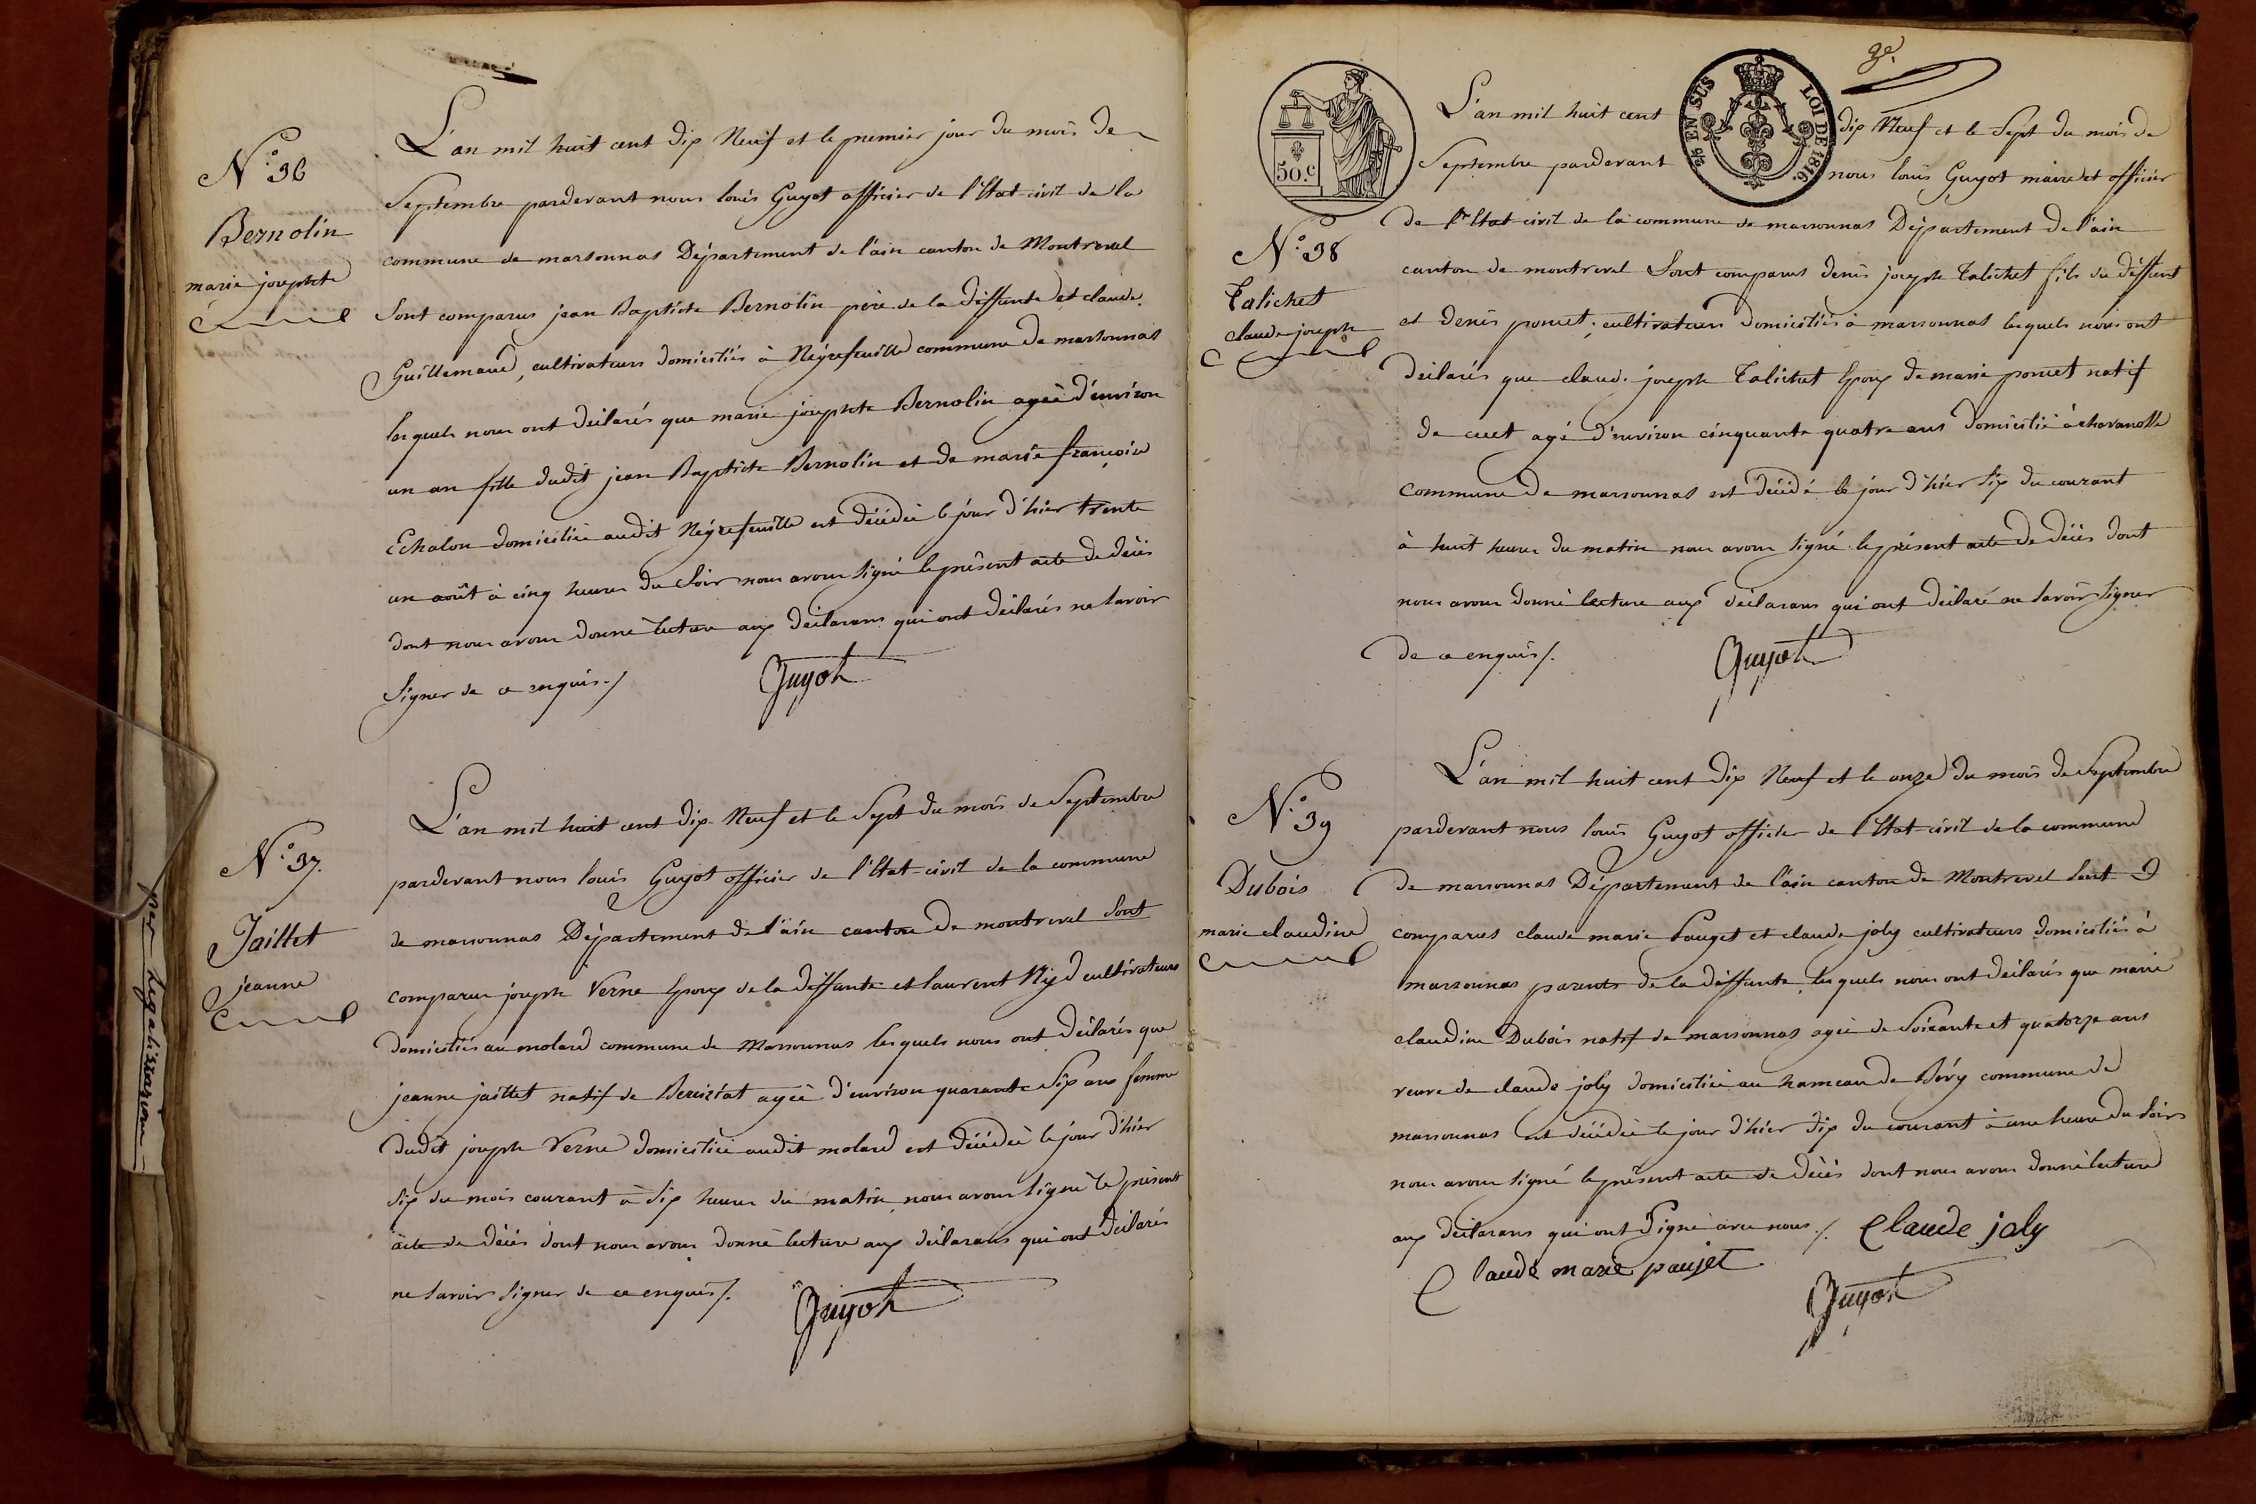 N.º 36
Bernolin
marie josephte
L'an mil huit cent dix Neuf et le premier jour du mois de
Septembre pardevant nous louis Guyot officier de l'Etat civil de la
commune de marsonnas Département de l'ain canton de Montrevel
Sont comparus jean Baptiste Bernolin père de la deffunte et claude
Guillemaud, cultivateurs domiciliés à Néyrefeuille commune de marsonnas
lesquels nous ont déclarés que marie josephte Bernolin agée d'environ
un an fille dudit jean Baptiste Bernolin et de marie françoise
Echalon domiciliée audit Néyrefeuille est décédée le jour d'hier trente
un août à cinq heures du Soir nous avons signé le présent acte de décès
dont nous avons donné lecture aux déclarans qui ont déclarés ne savoir
Signer de ce enquis ./
Guyot
N.º 37.
Jaillet
jeanne
L'an mil huit cent dix Neuf et le Sept du mois de Septembre
pardevant nous louis Guyot officier de l'Etat civil de la commune
de marsonnas Département de l'ain canton de montrevel Sont
comparus joseph Verne Epoux de la deffunte et laurent Nyd cultivateurs
domiciliés au molard commune de Marsonnas lesquels nous ont déclarés que
jeanne jaillet natif de Bereiziat agée d'environ quarante Six ans femme
dudit joseph Verne domiciliée audit molard est décédée le jour d'hier
Six du mois courant à Six heures du matin, nous avons signé le présent
acte de décès dont nous avons donné lecture aux déclarans qui ont déclarés
ne savoir signer de ce enquis /.
Guyot
legalisation
50.c
EN SUS
LOI DE 1816.
L'an mil huit cent dix Neuf et le Sept du mois de
Septembre pardevant nous louis Guyot maire et officier
N.º 38
Talichet
claude joseph
de l'Etat civil de la commune de marsonnas Département de l'ain
canton de montrevel Sont comparus denis joseph Talichet fils du deffunt
et denis poncet, cultivateurs domiciliés à marsonnas lesquels nous ont
déclarés que claude joseph Talichet Epoux de marie poncet natif
de cuet agé d'environ cinquante quatre ans domicilié à chavanolle
commune de marsonnas est décédé le jour d'hier Six du courant
à huit heures du matin nous avons signé le présent acte de décès dont
nous avons donné lecture aux déclarans qui ont déclaré ne savoir signer
de ce enquis /.
Guyot
N.º 39
Dubois
marie claudine
L'an mil huit cent dix Neuf et le onze du mois de Septembre
pardevant nous louis Guyot officier de l'Etat civil de la commune
de marsonnas Département de l'ain canton de Montrevel Sont
comparus claude marie Pauget et claude joly cultivateurs domiciliés à
marsonnas parents de la deffunte, lesquels nous ont déclarés que marie
claudine Dubois natif de marsonnas agée de Soixante et quatorze ans
veuve de claude joly domiciliée au hameau de Bévy commune de
marsonnas est décédée le jour d'hier dix du courant à une heure du Soir
nous avons signé le présent acte de décès dont nous avons donné lecture
aux déclarans qui ont Signé avec nous /. Claude joly
Claude marie paujet
Guyot